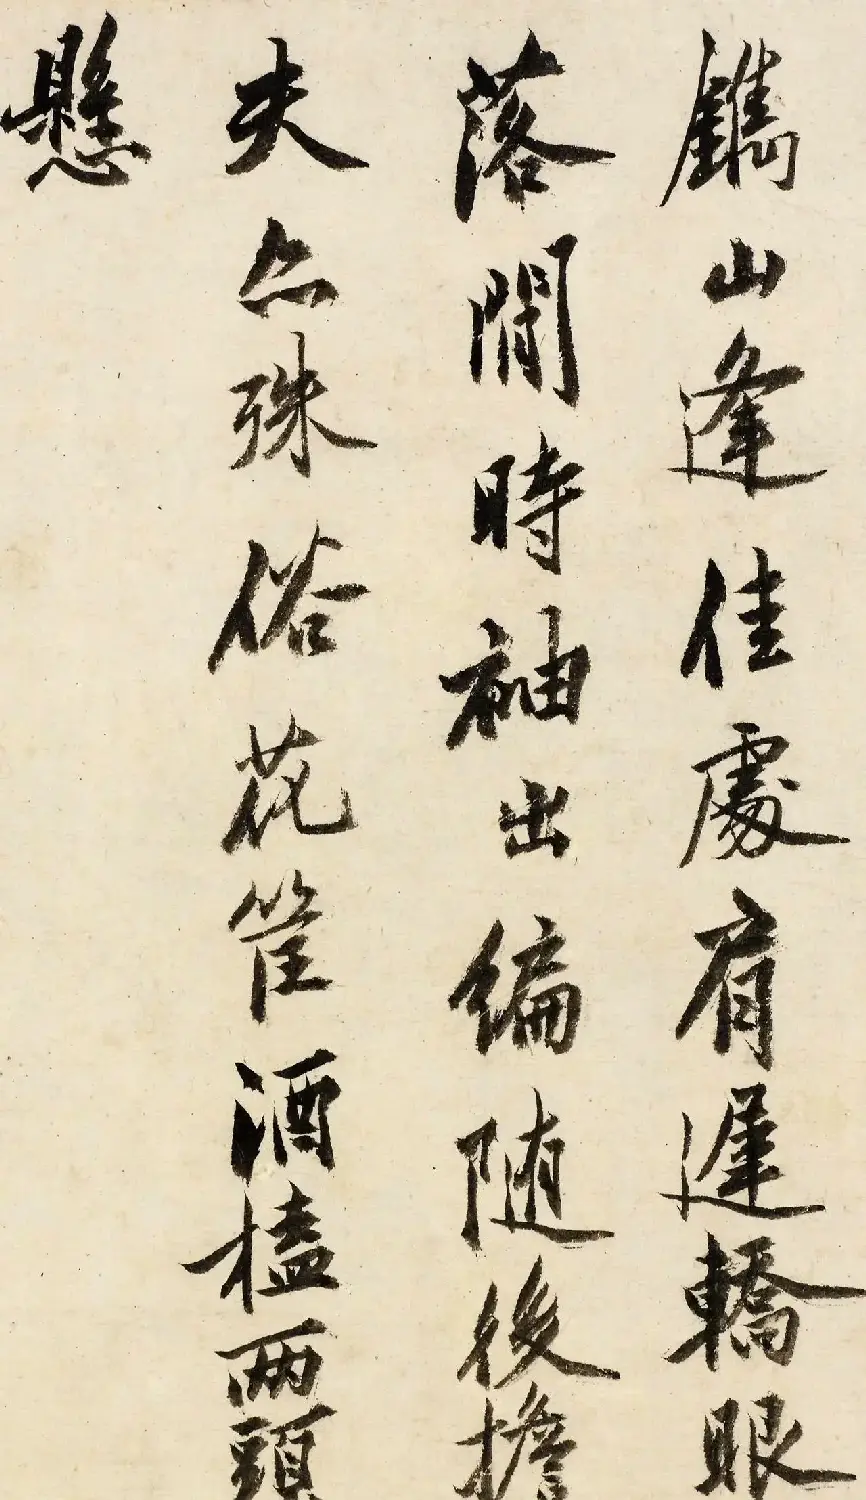 鐫山逢佳處肩遲轎眼
落閒時袖出編随後擔
夫亦殊俗花筐酒榼两頭
懸